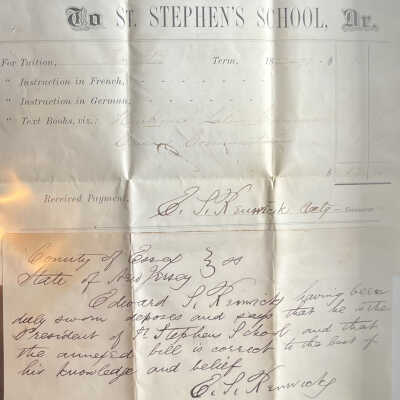 To St. STEPHEN'S SCHOOL, Dr.
For Tuition, Term, 18 $
" Instruction in French,
" Instruction in German,
" Text Books, viz.: Latin
$
Received Payment,
E. S. Renwick Treasurer
County of Essex } ss
State of New Jersey
Edward S. Renwick having been
duly sworn deposes and says that he is the
President of St Stephens School, and that
the annexed bill is correct to the best of
his knowledge and belief
E. S. Renwick